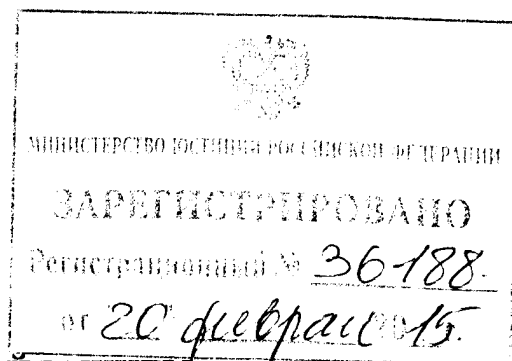 МИНИСТЕРСТВО ЮСТИЦИИ РОССИЙСКОЙ ФЕДЕРАЦИИ
ЗАРЕГИСТРИРОВАНО
Регистрационный № 36188.
от 20 февраля 2015.